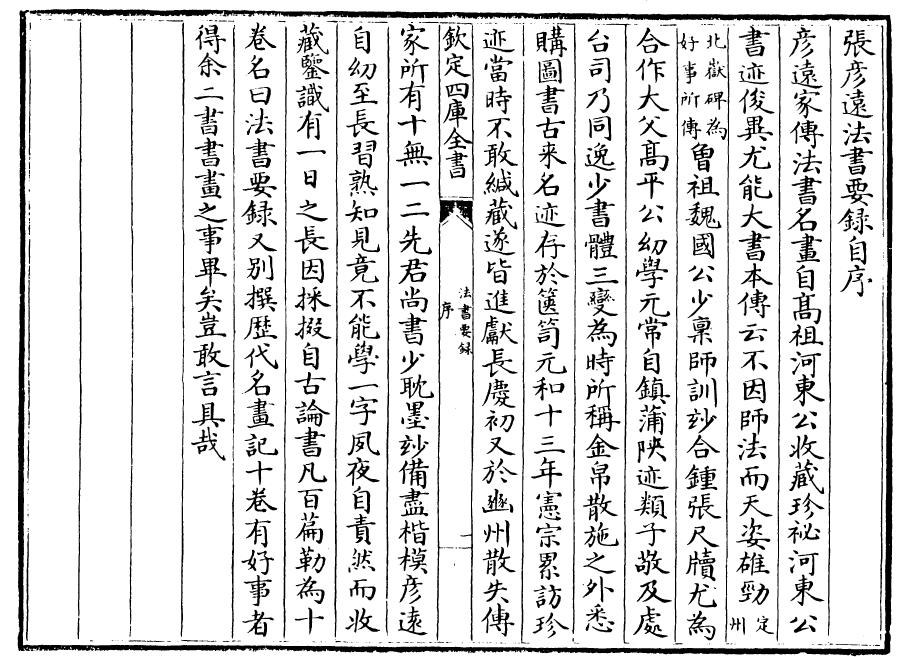 張彦遠法書要録自序
彦遠家傳法書名畫自髙祖河東公收藏珍祕河東公
書迹俊異尤能大書本傳云不因師法而天姿雄勁定州
北嶽碑為好事所傳曽祖魏國公少稟師訓玅合鍾張尺牘尤為
合作大父髙平公幼學元常自鎮蒲陜迹類子敬及處
台司乃同逸少書體三變為時所稱金帛散施之外悉
購圖書古来名迹存於篋笥元和十三年憲宗累訪珍
迹當時不敢緘藏遂皆進獻長慶初又於豳州散失傳
欽定四庫全書
法書要録
序
一
家所有十無一二先君尚書少耽墨玅備盡楷模彦逺
自幼至長習熟知見竟不能學一字夙夜自責然而收
藏鑒識有一日之長因採掇自古論書凡百篇勒為十
卷名曰法書要録又别撰歴代名畫記十卷有好事者
得余二書書畫之事畢矣豈敢言具哉